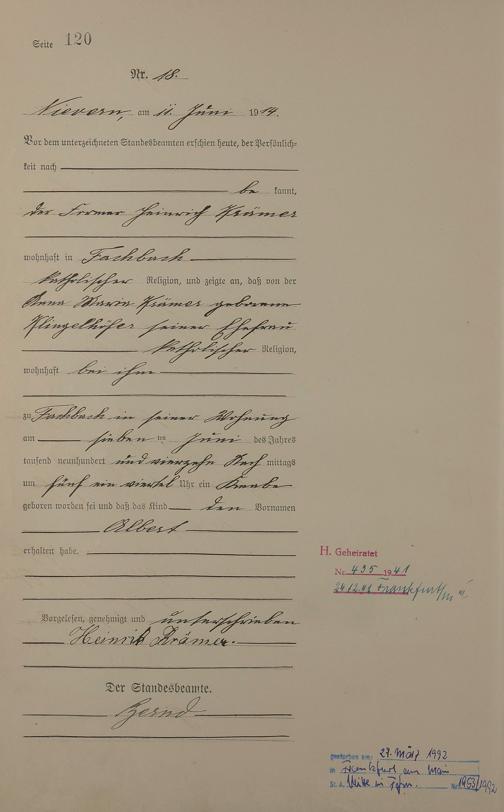 Seite 120
Nr. 18.
Nievern, am 11. Juni 1914.
Vor dem unterzeichneten Standesbeamten erschien heute, der Persönlich-
keit nach
be kannt,
der Former Heinrich Krämer
wohnhaft in Fachbach
katholischer Religion, und zeigte an, daß von der
Anna Maria Krämer geborene
Klingelhöfer seiner Ehefrau
katholischer Religion,
wohnhaft bei ihm
zu Fachbach in seiner Wohnung
am sieben ten Juni des Jahres
tausend neunhundert und vierzehn Nach mittags
um fünf ein viertel Uhr ein Knabe
geboren worden sei und daß das Kind den Vornamen
Albert
erhalten habe.
Vorgelesen, genehmigt und unterschrieben
Heinrich Krämer.
Der Standesbeamte.
H. Geheiratet
Nr. 495 1941
24.12.41 Frankfurt/M
gestorben am: 27. März 1992
in Frankfurt am Main
St. A. Mitte in Ffm. Nr. 1953/1992